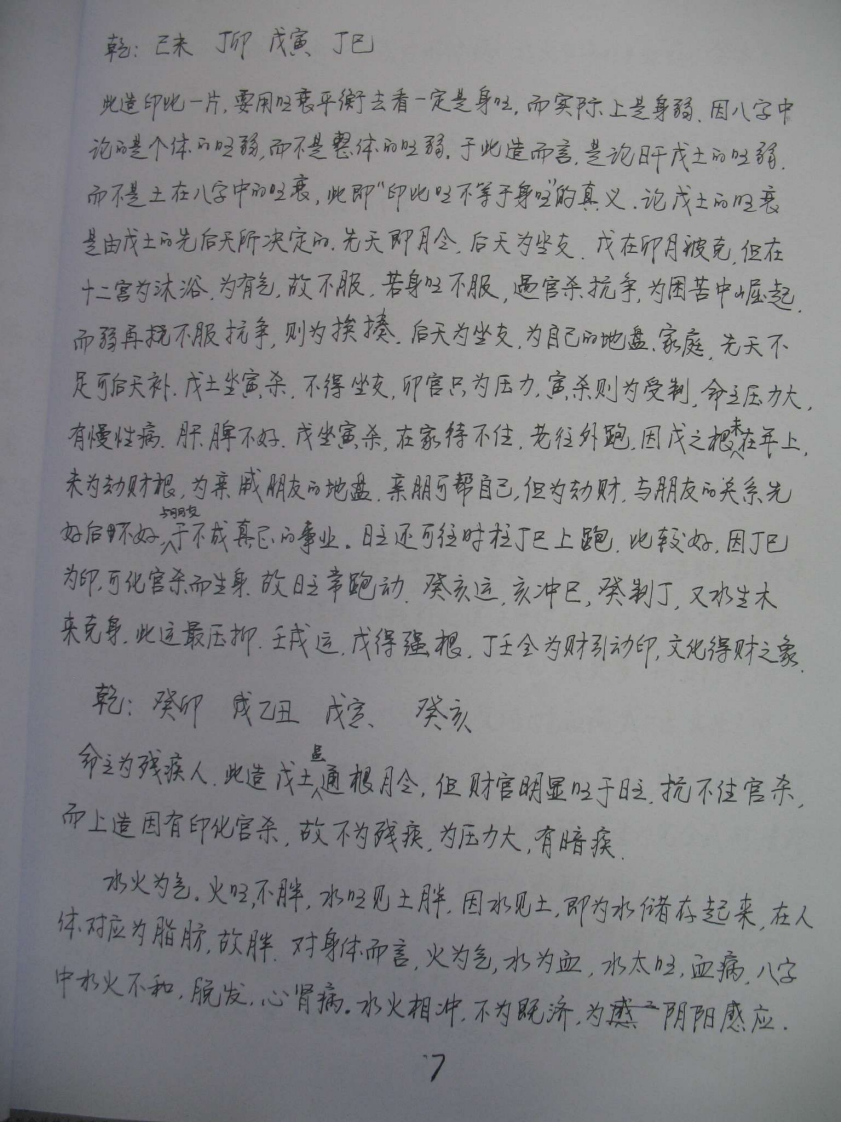 乾：己未 丁卯 戊寅 丁巳
此造印比一片，要用旺衰平衡去看一定是身旺，而实际上是身弱，因八字中
论的是个体的旺弱，而不是整体的旺弱，于此造而言，是论日干戊土的旺弱，
而不是土在八字中的旺衰，此即“印比旺不等于身旺”的真义。论戊土的旺衰
是由戊土的先后天所决定的，先天即月令，后天为坐支，戊在卯月被克，但在
十二宫为沐浴，为有气，故不服，若身旺不服，遇官杀抗争，为困苦中崛起，
而弱再挠不服抗争，则为挨揍。后天为坐支，为自己的地盘、家庭，先天不
足可后天补，戊土坐寅杀，不得坐支，卯官只为压力，寅杀则为受制，命主压力大，
有慢性病，肝、脾不好，戊坐寅杀，在家待不住，老往外跑，因戊之根未在年上，
来为劫财根，为亲戚朋友的地盘，亲朋可帮自己，但为劫财，与朋友的关系先
好后不好，与朋友于不成真己的事业。日主还可往时柱丁巳上跑，比较好，因丁巳
为印，可化官杀而生身，故日主常跑动，癸亥运，亥冲巳，癸制丁，又水生木
来克身，此运最压抑，壬戌运，戊得强根，丁壬合为财引动印，文化得财之象。
乾：癸卯 乙丑 戊寅、癸亥
命主为残疾人，此造戊土虽通根月令，但财官明显旺于日主，抗不住官杀，
而上造因有印化官杀，故不为残疾，为压力大，有暗疾。
水火为气。火旺，不胖，水旺见土胖，因水见土，即为水储存起来，在人
体对应为脂肪，故胖，对身体而言，火为气，水为血，水太旺，血病，八字
中水火不和，脱发，心肾病。水火相冲，不为既济，为阴阳感应。
7